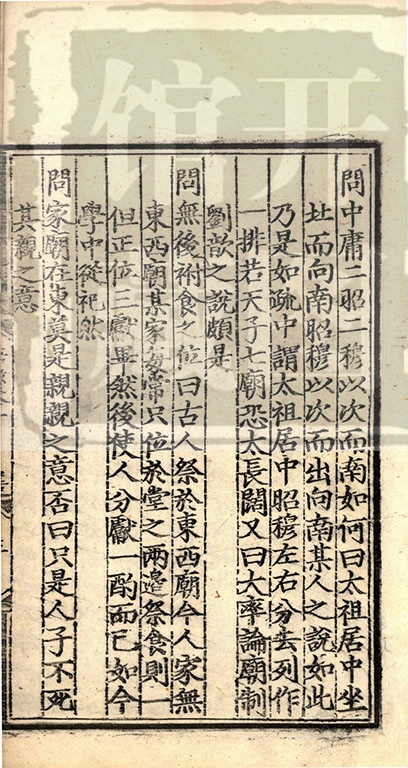 問中庸二昭二穆以次而南如何曰太祖居中坐
址而向南昭穆以次而出向南某人之說如此
乃是如疏中謂太祖居中昭穆左右分去列作
一排若天子七廟恐太長闊又曰大率論廟制
劉歆之說頗是
問無後祔食之位曰古人祭於東西廂今人家無
東西廂某家尋常只位於堂之兩邉祭食則一
但正位三獻畢然後使人分獻一酌而已如今
學中從祀然
問家廟在東莫是親親之意否曰只是人子不死
其親之意